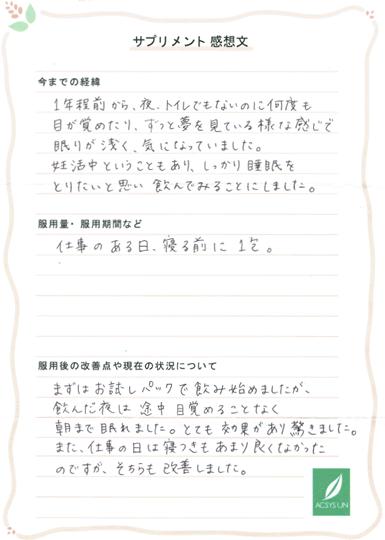 サプリメント 感想文
今までの経緯
1年程前から、夜、トイレでもないのに何度も
目が覚めたり、ずっと夢を見ている様な感じで
眠りが浅く、気になっていました。
妊活中ということもあり、しっかり睡眠を
とりたいと思い 飲んでみることにしました。
服用量・服用期間など
仕事のある日、寝る前に 1包。
服用後の改善点や現在の状況について
まずはお試しパックで飲み始めましたが、
飲んだ夜は 途中 目覚めることなく
朝まで眠れました。とても 効果があり 驚きました。
また、仕事の日は寝つきもあまり良くなかった
のですが、そちらも 改善しました。
ACSYS UN